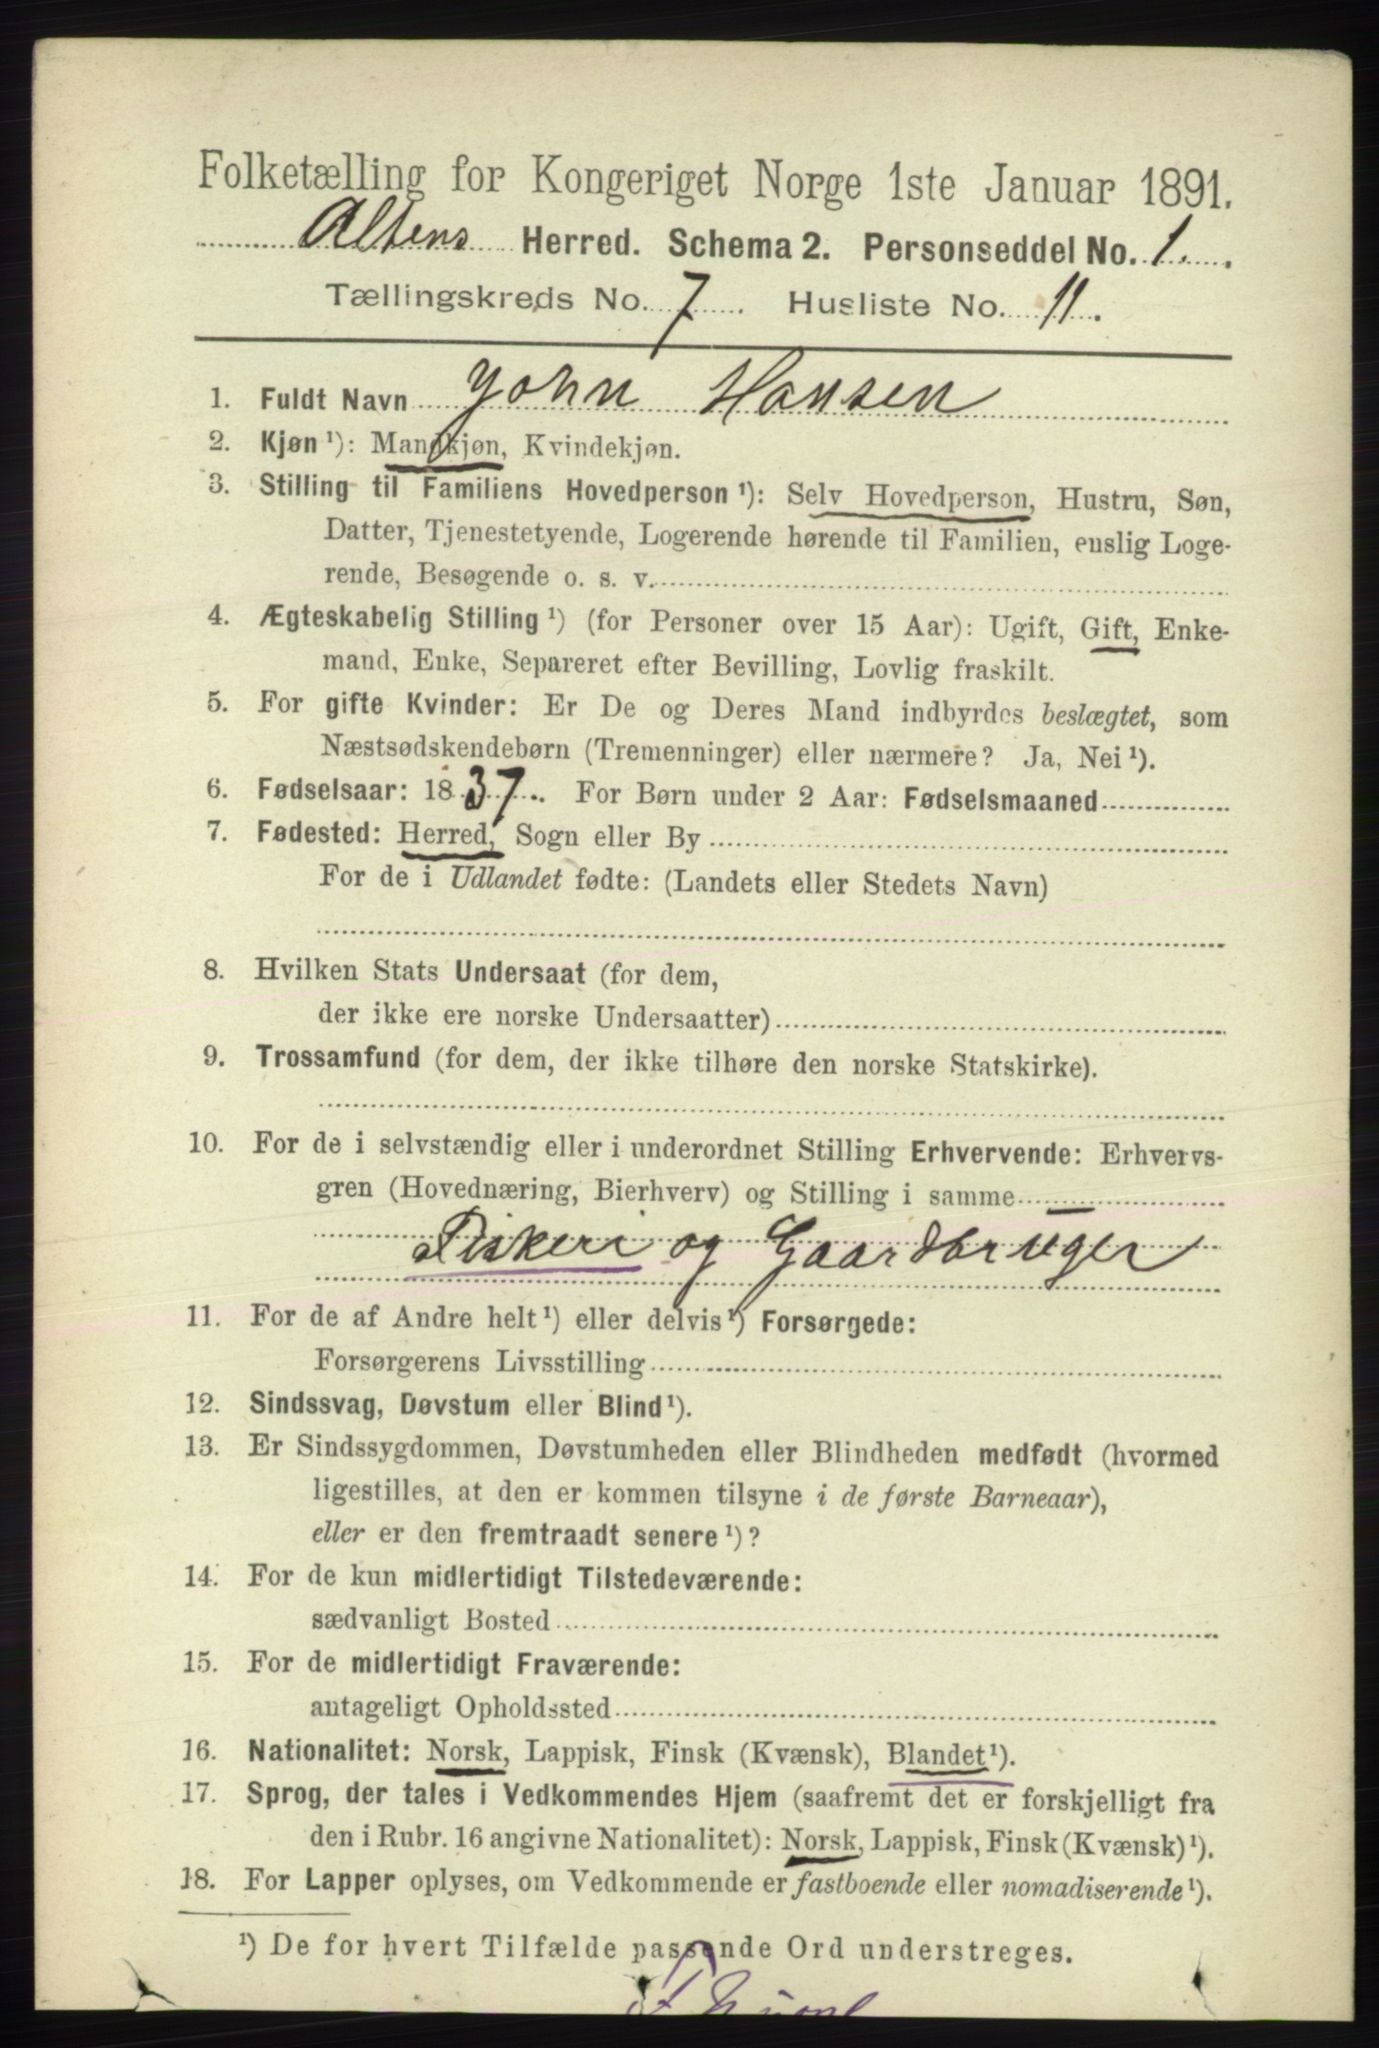 Folketælling for Kongeriget Norge 1ste Januar 1891.
Altens Herred. Schema 2. Personseddel No. 1.
Tællingskreds No. 7. Husliste No. 11.
1. Fuldt Navn John Hansen
2. Kjøn ¹): Mandkjøn, Kvindekjøn.
3. Stilling til Familiens Hovedperson ¹): Selv Hovedperson, Hustru, Søn,
Datter, Tjenestetyende, Logerende hørende til Familien, enslig Loge-
rende, Besøgende o. s. v.
4. Ægteskabelig Stilling ¹) (for Personer over 15 Aar): Ugift, Gift, Enke-
mand, Enke, Separeret efter Bevilling, Lovlig fraskilt.
5. For gifte Kvinder: Er De og Deres Mand indbyrdes beslægtet, som
Næstsødskendebørn (Tremenninger) eller nærmere? Ja, Nei ¹).
6. Fødselsaar: 1837. For Børn under 2 Aar: Fødselsmaaned
7. Fødested: Herred, Sogn eller By
For de i Udlandet fødte: (Landets eller Stedets Navn)
8. Hvilken Stats Undersaat (for dem,
der ikke ere norske Undersaatter)
9. Trossamfund (for dem, der ikke tilhøre den norske Statskirke).
10. For de i selvstændig eller i underordnet Stilling Erhvervende: Erhvervs-
gren (Hovednæring, Bierhverv) og Stilling i samme
Fiskeri og Gaardbruger
11. For de af Andre helt ¹) eller delvis ¹) Forsørgede:
Forsørgerens Livsstilling
12. Sindssvag, Døvstum eller Blind ¹).
13. Er Sindssygdommen, Døvstumheden eller Blindheden medfødt (hvormed
ligestilles, at den er kommen tilsyne i de første Barneaar),
eller er den fremtraadt senere ¹)?
14. For de kun midlertidigt Tilstedeværende:
sædvanligt Bosted
15. For de midlertidigt Fraværende:
antageligt Opholdssted
16. Nationalitet: Norsk, Lappisk, Finsk (Kvænsk), Blandet ¹).
17. Sprog, der tales i Vedkommendes Hjem (saafremt det er forskjelligt fra
den i Rubr. 16 angivne Nationalitet): Norsk, Lappisk, Finsk (Kvænsk) ¹).
18. For Lapper oplyses, om Vedkommende er fastboende eller nomadiserende ¹).
¹) De for hvert Tilfælde passende Ord understreges.